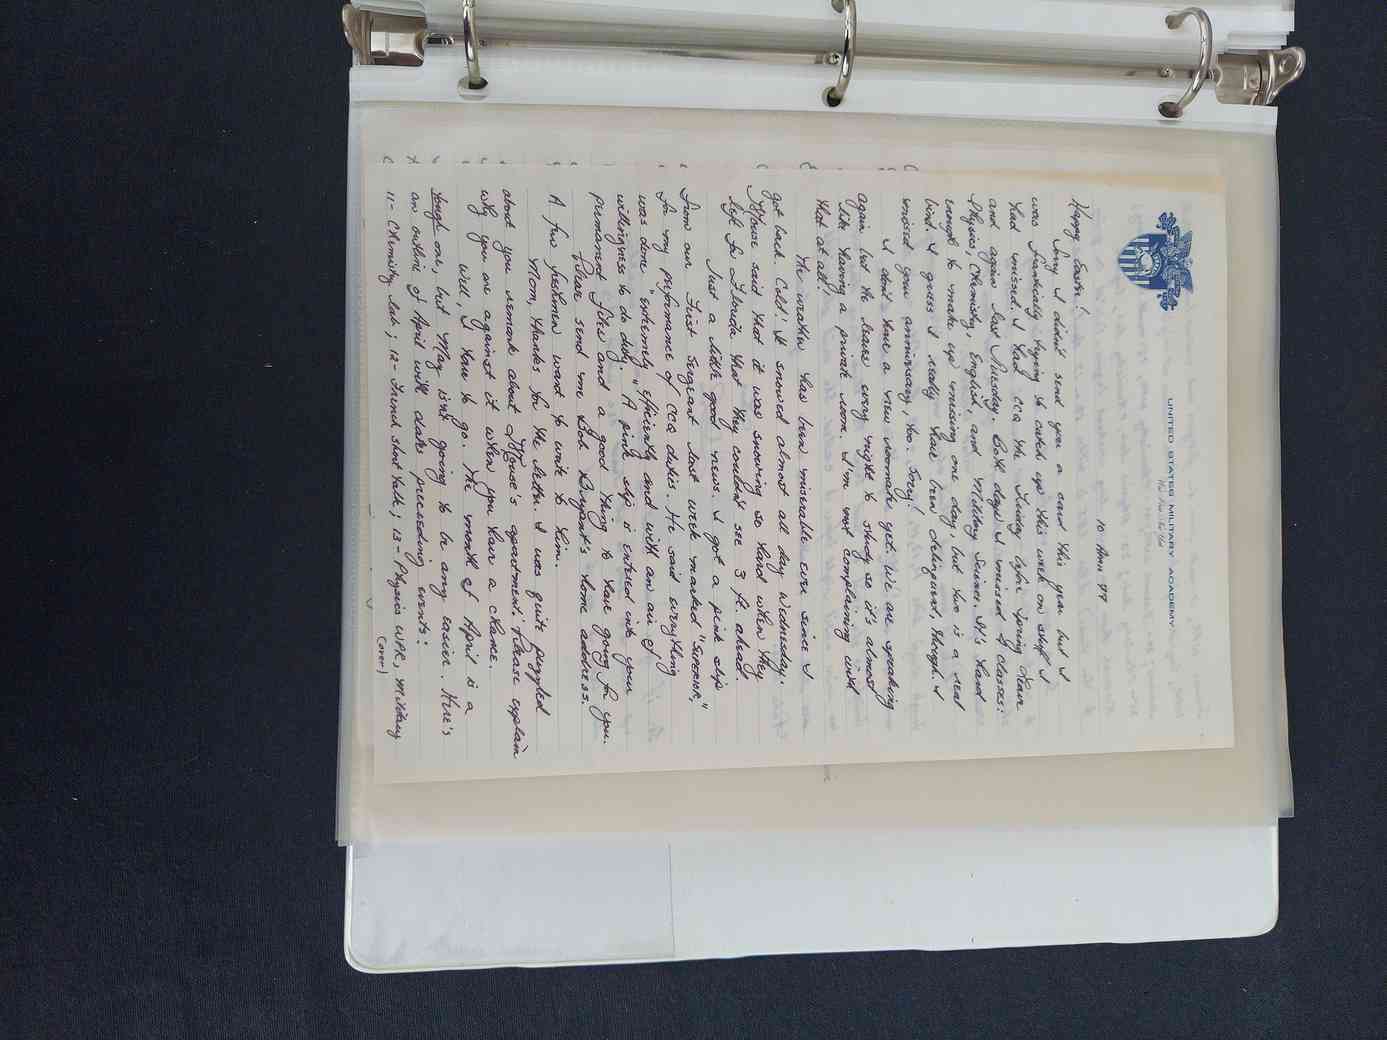 UNITED STATES MILITARY ACADEMY
West Point, New York 10996
10 Apr 77
Happy Easter!
Sorry I didn't send you a card this year but I
was frantically trying to catch up this week on stuff I
had missed. I had CCQ the Friday before Spring Leave
and again last Tuesday. Both days I missed 4 classes:
Physics, Chemistry, English, and Military Science. It's hard
enough to make up missing one day, but two is a real
bind. I guess I really have been delinquent, though. I
missed your anniversary, too. Sorry!
I don't have a new roommate yet. We are speaking
again but he leaves every night to study so it's almost
like having a private room. I'm not complaining with
that at all!
The weather has been miserable ever since I
got back. Cold! It snowed almost all day Wednesday.
said that it was snowing so hard when they
left for Florida that they couldn't see 3 ft. ahead.
Just a little good news. I got a pink slip
from our First Sergeant last week marked "Superior,"
for my performance of CCQ duties. He said everything
was done "extremely efficiently and with an air of
willingness to do duty." A pink slip is entered into your
permanent files and a good thing to have going for you.
Please send me Bob Bryant's home address.
A few freshmen want to write to him.
Mom, thanks for the letter. I was quite puzzled
about your remark about apartment. Please explain
why you are against it when you have a chance.
Well, I have to go. The month of April is a
tough one, but May isn't going to be any easier. Here's
an outline of April with dates preceeding events:
11- Chemistry Lab; 12- French short talk; 13- Physics WPR, Military
(over)